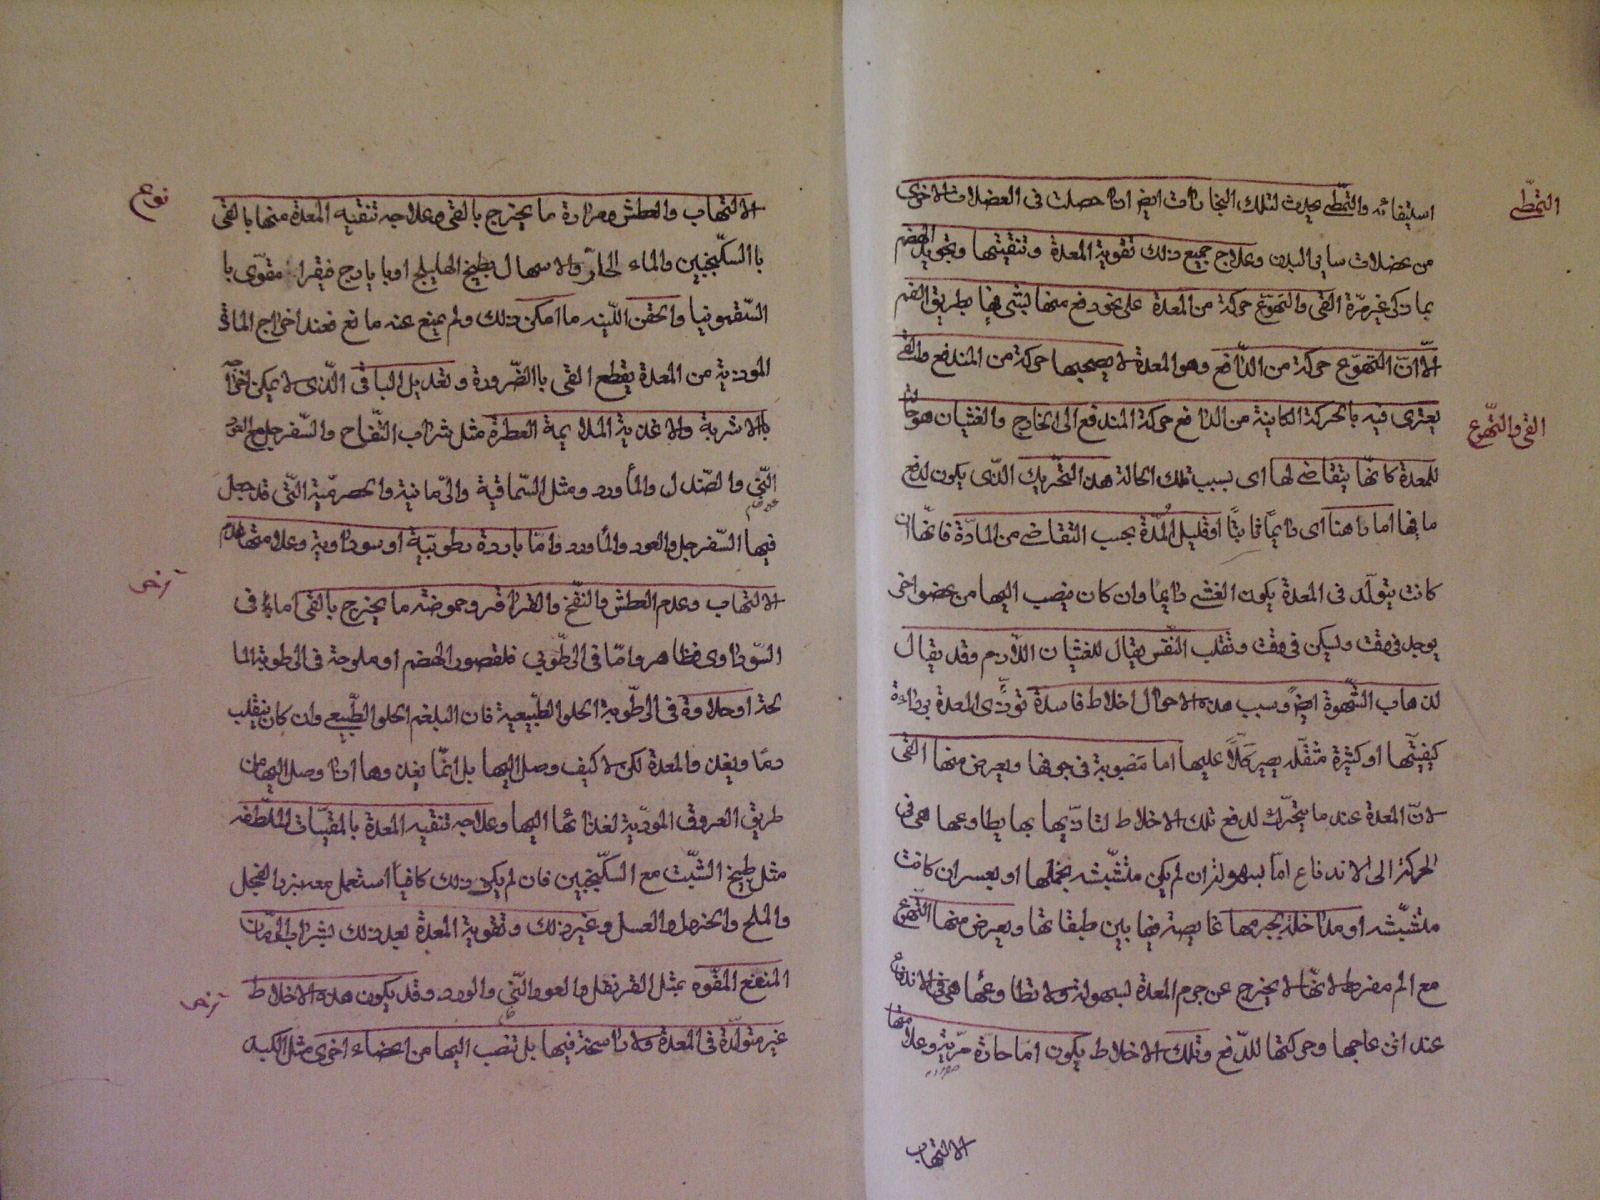 التمطّي
استيفائه والتمطّي يحدث لتلك البخارات ايضا اذا حصلت في العضلات الاخرى
من عضلات ساير البدن وعلاج جميع ذلك تقوية المعدة وتنقيتها وتجويد الهضم
بما ذكر غير مرّة القى والتهوّع حركة من المعدة على نحو دفع منها لشى فيها بطريق الفم
الّا انّ التهوّع حركة من الدّافع وهو المعدة لا يصحبها حركة من المندفع والقى
القى والتهّوع
يعترى فيه بالحركة الكاينة من الدافع حركة المندفع الى الخارج والغثيان هو حالة
للمعدة كانّها يتقاضى لها اى بسبب تلك الحالة هذا التحريك الذّى يكون لدفع
ما فيها اما راهنا اى دايمًا ثابتًا او قليل المدّة بحسب التقاضى من المادّة فانّها ان
كانت يتولّد في المعدة يكون الغثى دايمًا وان كان ينصب اليها من عضو اخر
يوجد في وقت وليكن في وقت وتقلب النّفس يقال للغثيان اللّازم وقد يقال
لذهاب الشّهوة ايضًا وسبب هذه الاحوال اخلاط فاسدة تؤذّى المعدة برداءة
كيفيّتها او كثرة مثقّله يصير كلًّا عليها اما مصبوبة في جوفها ويعرض منها القى
لانّ المعدة عند ما يتحرّك لدفع تلك الاخلاط لتاذّيها بها يطاوعها هي في
الحركة الى الاندفاع امّا بسهولة ان لم يكن متشبّثه بخملها او بعسر ان كانت
متشبّثه او مداخلة بجرمها غايصة فيها بين طبقاتها ويعرض منها التّهوّع
مع الم مفرط لانّها لا يخرج عن جرم المعدة بسهولة ولا تطاوعها هي في الاندفاع
عند انزعاجها وحركتها للدّفع وتلك الاخلاط يكون اما حارّة مرّية وعلامتها
صفراوية
الالتهاب
نوع
الالتهاب والعطش ومرارة ما يخرج بالقى وعلاجه تنقيه المعدة منها بالقى
باالسكّنجبين والماء الحارّ والاسهال بطبيخ الهليلج او با يارج فيقرا مقوّى با
السّقمونيا والحقن اللّينه ما امكن ذلك ولم يمنع عنه مانع فعند اخراج المادّة
الموذية من المعدة يقطع القى باالضّرورة وتعديل الباقى الّذى لا يمكن اخراجه
بالاشربة والاغذية الملايمة العطرة مثل شراب التفّاح والسّفرجل مع العود
النّي والصّندل والمأورد ومثل السّماقية والرّمانية والحصرميّة التّي قد جعل
فيها السّفرجل والعود والمأورد وامّا باردة رطوبيّة او سوداوية وعلامتها عدم
آخر
الالتهاب وعدم العطش والنفّخ والقراقر وحموضة ما يخرج بالقى اما في
السّوداوى فظاهر وامّا في الرطّوبي فلقصور الهضم او ملوحة في الرطوبة الما
لحة او حلاوة في الرطّوبة الحلوا الطّبيعية فان البلغم الحلو الطّبيعي وان كان ينقلب
دمًا ويغذى والمعدة لكن لا كيف وصل اليها بل انمّا يغذوها اذا وصل اليها من
طريق العروق المودّية لغذائها اليها وعلاجه تنقيه المعدة بالمقيّات الملّطفه
مثل طبيخ الشبّت مع السكّنجبين فان لم يكن ذلك كافيًا استعمل معه بزر الفجل
والملح والخردل والعسل وغير ذلك وتقوية المعدة بعد ذلك بشراب الرمّان
المنعنع المقّوه بمثل القرنفل والعود النّي والورد وقد يكون هذه الاخلاط
آخر
غير متولّدة في المعدة ولا راسخة فيها بل تنصب اليها من اعضاء اخرى مثل الكبد